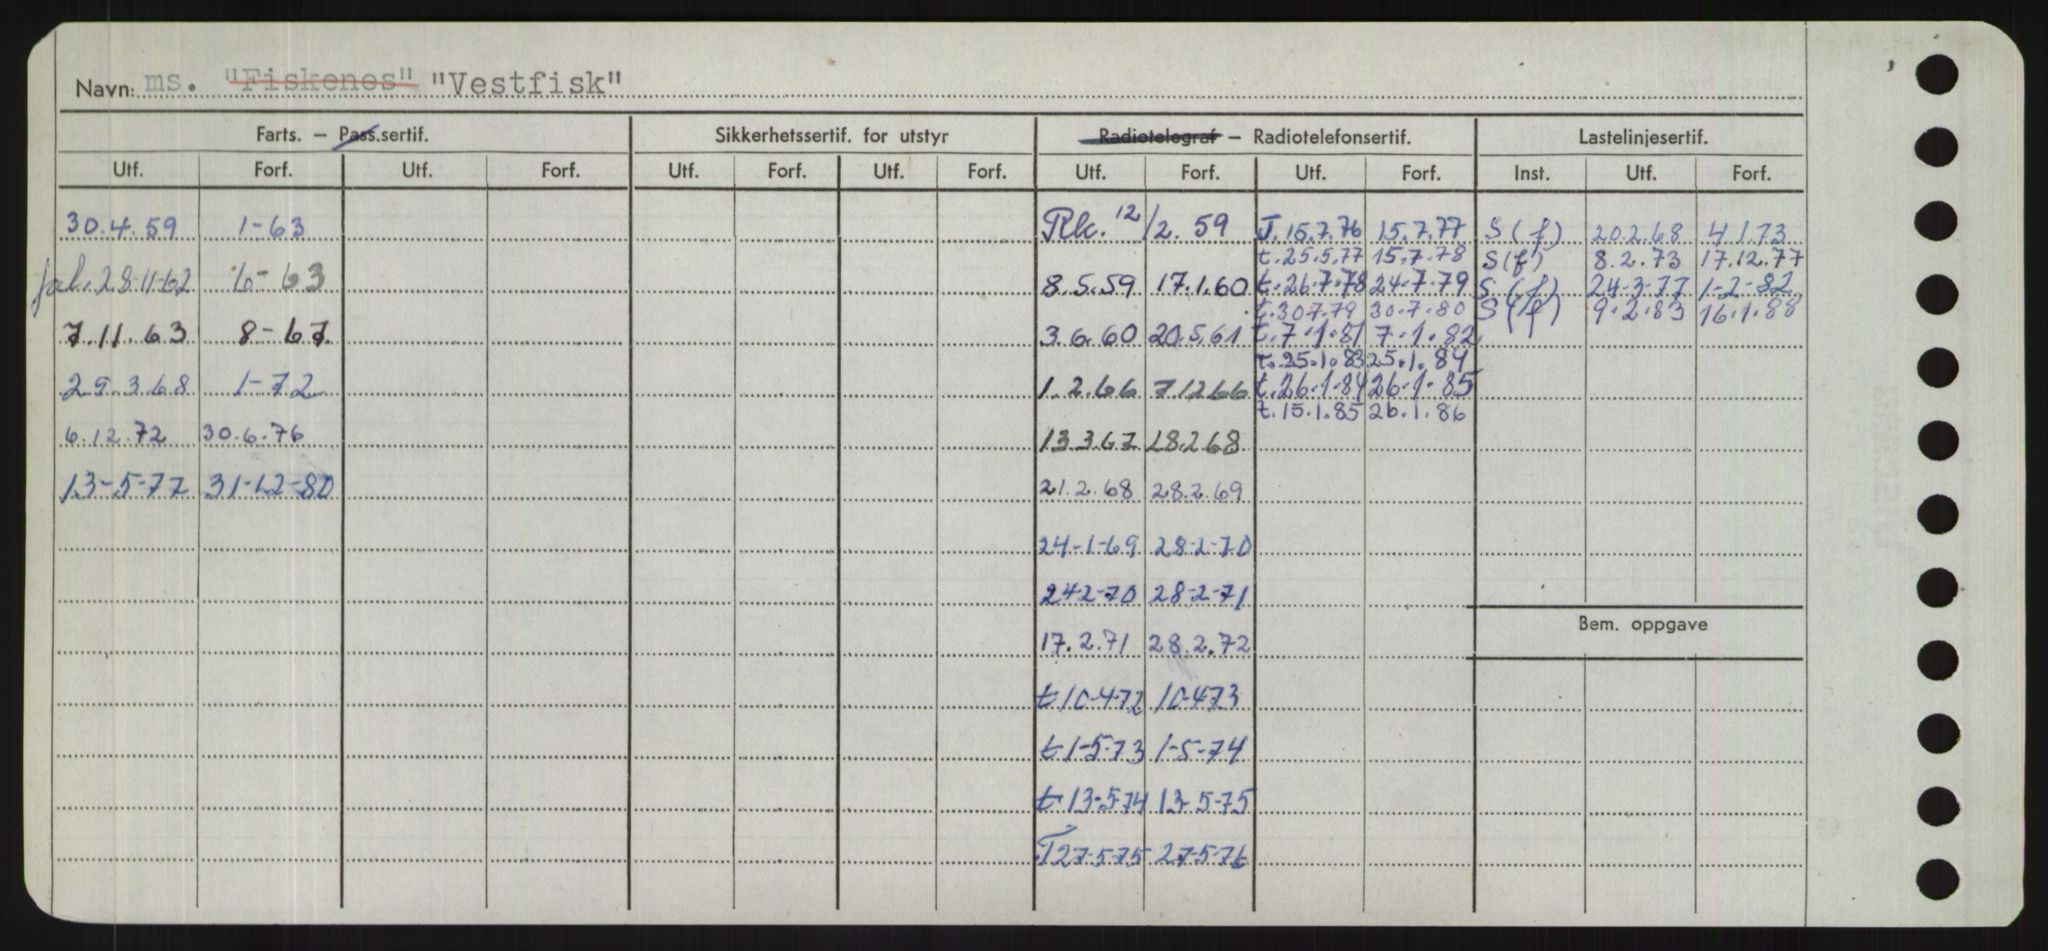 Navn: ms. "Fiskenes" "Vestfisk"
Farts. — Pass.sertif. Sikkerhetssertif. for utstyr Radiotelegraf — Radiotelefonsertif. Lastelinjesertif.
Utf. Forf. Utf. Forf. Utf. Forf. Utf. Forf. Utf. Forf. Utf. Forf. Inst. Utf. Forf.
30.4.59 1-63 12/2.59 T.15.7.76 15.7.77 S(f) 20.2.68 4.1.73
t.25.5.77 15.7.78 S(f) 8.2.73 17.12.77
28-11-62 6-63 8.5.59 17.1.60 t.26-7-78 24-7-79 S(f) 24-3-77 1-2-82
t.30.7.79 30.7.80 S(f) 9.2.83 16.1.88
7.11.63 8-67 3.6.60 20.5.61 t.7.1.81 7.1.82
t.25.1.83 25.1.84
29.3.68 1-72 1.2.66 71266 t.26.1.84 26.1.85
t.15.1.85 26.1.86
6.12.72 30.6.76 13367 28.268
13-5-77 31-12-80 21.2.68 28.2.69
24-1-69 28-2-70
242-70 28-2-71
17.2.71 28.2.72
t10-472 10-473
t1-5-73 1-5-74
t13-574 13-5-75
Bem. oppgave
T27-575 27-5-76